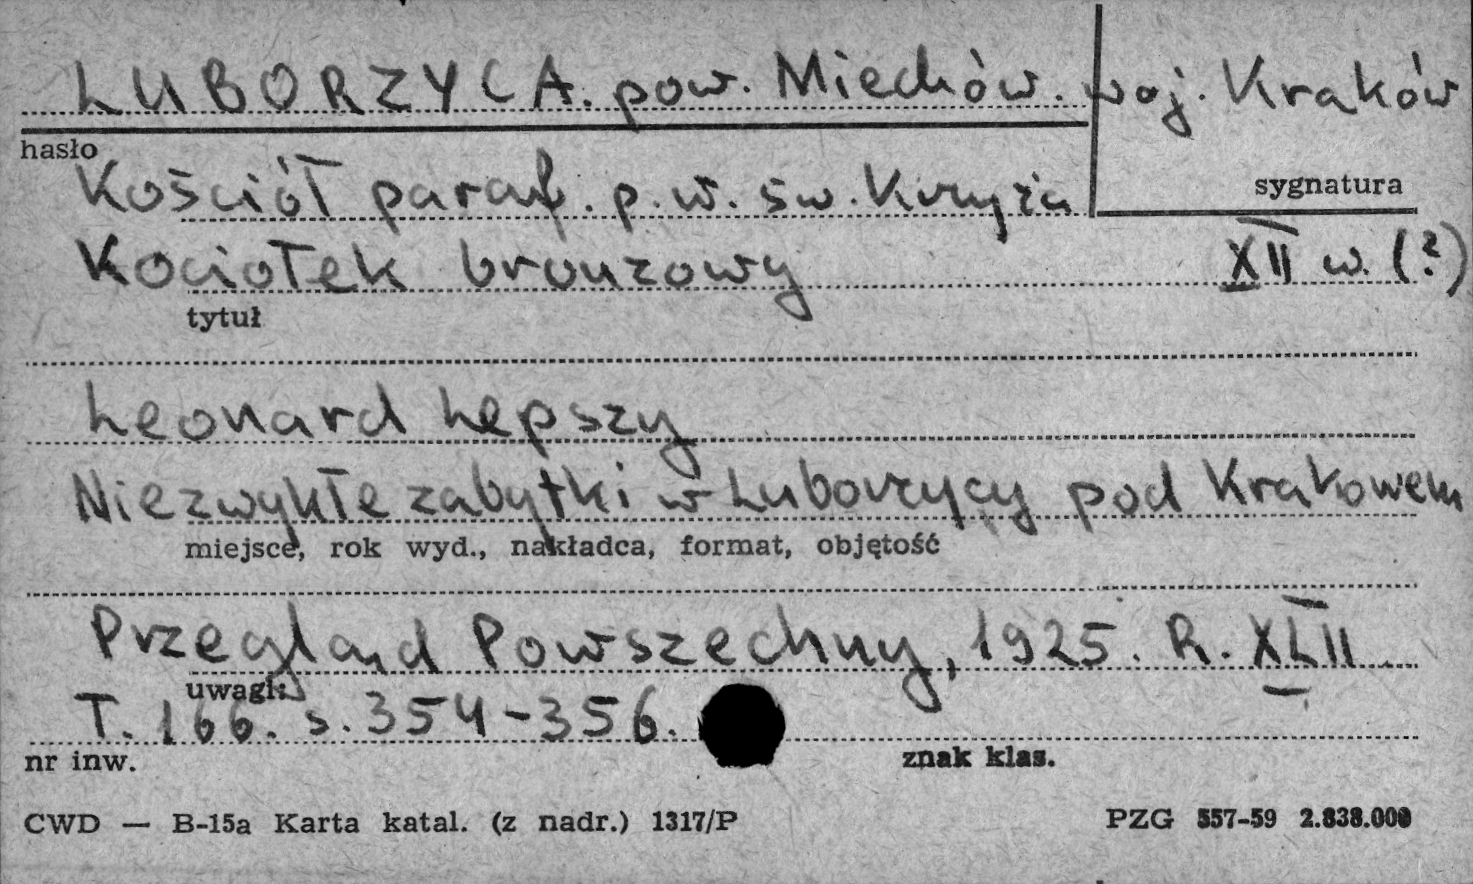 LUBORZYCA. pow. Miechów. woj. Kraków
hasło
Kościół paraf. p. w. św. Krzyża
sygnatura
Kociołek bronzowy XII w. (?)
tytuł
Leonard Lepszy
Niezwykłe zabytki w Luborzycy pod Krakowem
miejsce, rok wyd., nakładca, format, objętość
Przegląd Powszechny, 1925. R. XLII.
uwagi:
T. 166. s. 354-356.
nr inw. znak klas.
CWD — B-15a Karta katal. (z nadr.) 1317/P PZG 557-59 2.838.000